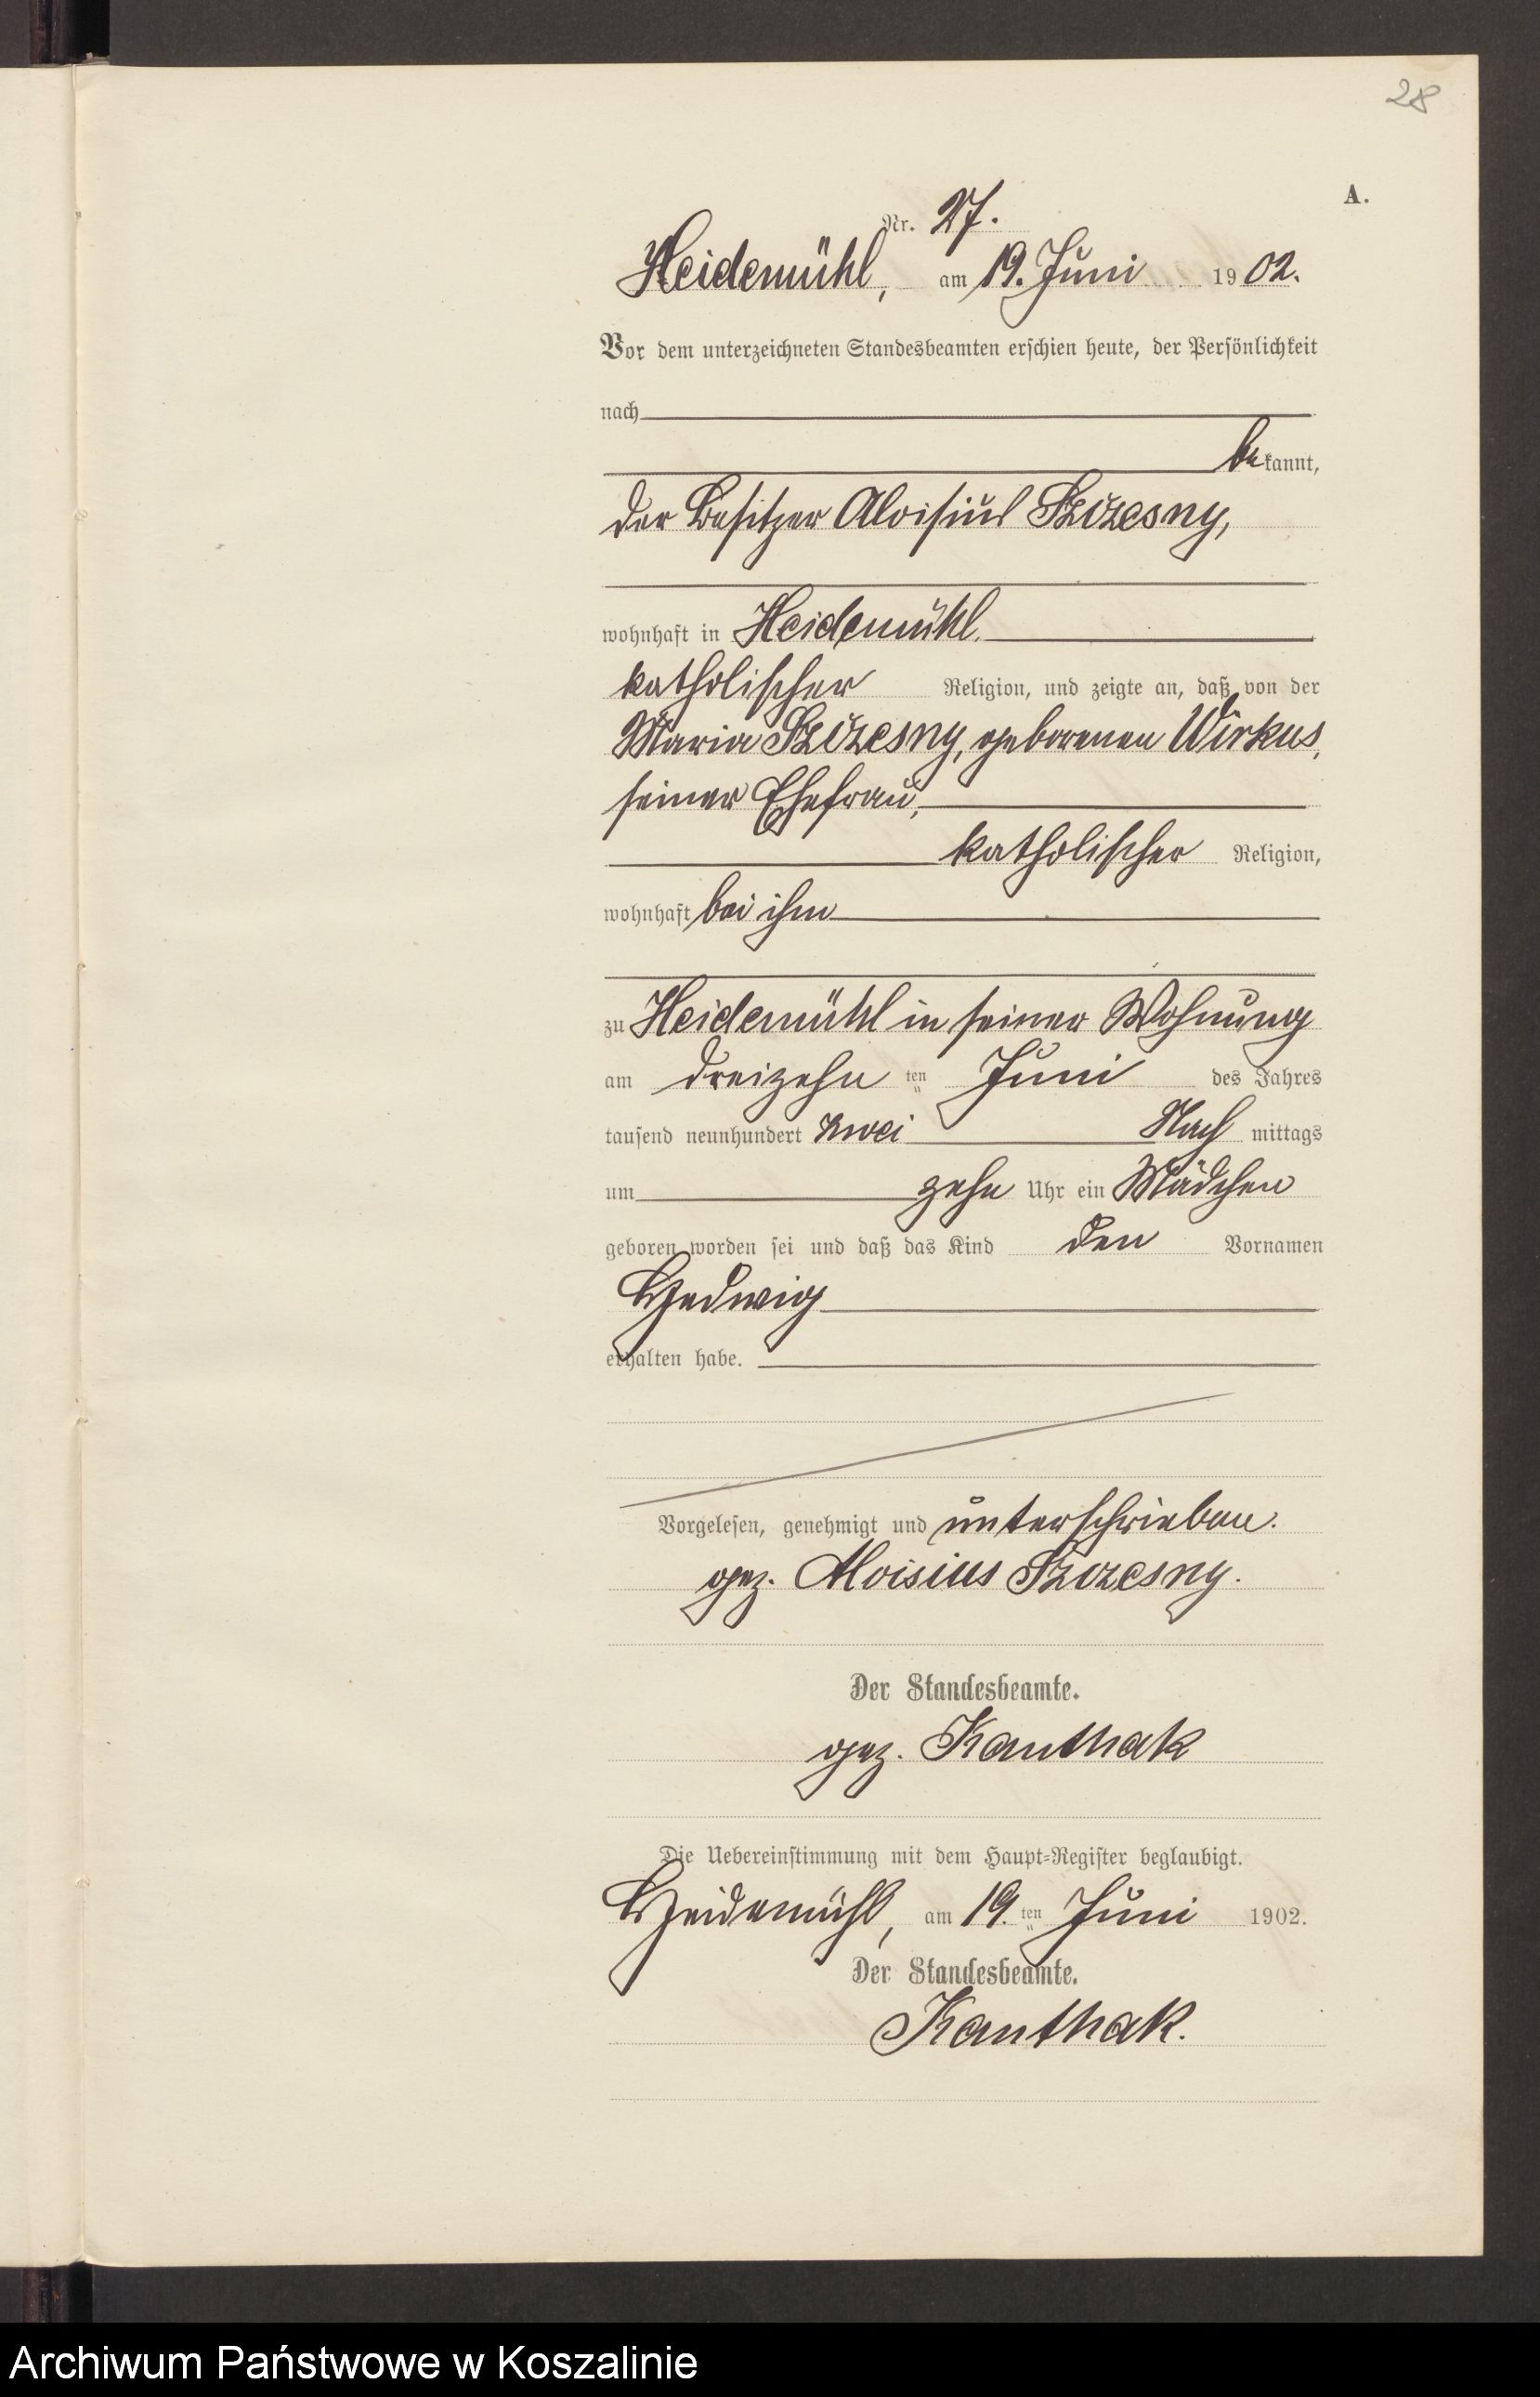 28
A.
Nr. 27.
Heidemühl, am 19. Juni 1902.
Vor dem unterzeichneten Standesbeamten erschien heute, der Persönlichkeit
nach
bekannt,
der Besitzer Aloisius Szczesny,
wohnhaft in Heidemühl,
katholischer Religion, und zeigte an, daß von der
Maria Szczesny, geborenen Wirkus,
seiner Ehefrau,
katholischer Religion,
wohnhaft bei ihm
zu Heidemühl in seiner Wohnung
am dreizehn ten Juni des Jahres
tausend neunhundert zwei Nach mittags
um zehn Uhr ein Mädchen
geboren worden sei und daß das Kind den Vornamen
Hedwig
erhalten habe.
Vorgelesen, genehmigt und unterschrieben.
gez. Aloisius Szczesny.
Der Standesbeamte.
gez. Kanthak
Die Uebereinstimmung mit dem Haupt-Register beglaubigt.
Heidemühl, am 19. ten Juni 1902.
Der Standesbeamte.
Kanthak.
Archiwum Państwowe w Koszalinie